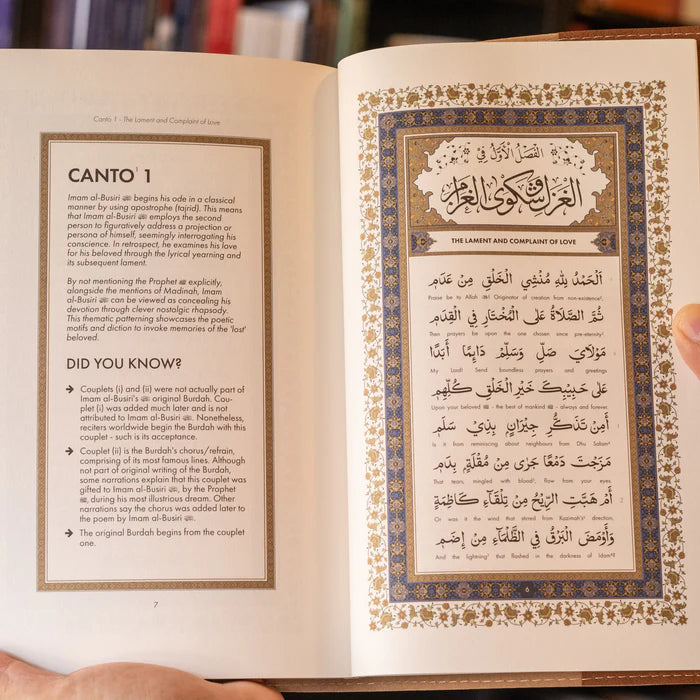 الفَصْلُ الْأَوَّلُ فِي
الغَزَلِ وَشَكْوَى الغَرَامِ
THE LAMENT AND COMPLAINT OF LOVE
اَلْحَمْدُ لِلّٰهِ مُنْشِي الْخَلْقِ مِنْ عَدَمِ
Praise be to Allah ﷻ! Originator of creation from non-existence¹,
ثُمَّ الصَّلَاةُ عَلَى الْمُخْتَارِ فِي الْقِدَمِ
Then prayers be upon the one chosen since pre-eternity².
مَوْلَايَ صَلِّ وَسَلِّمْ دَائِمًا أَبَدًا
My Lord! Send boundless prayers and greetings
عَلَى حَبِيبِكَ خَيْرِ الْخَلْقِ كُلِّهِمِ
Upon your beloved ﷺ - the best of mankind ﷺ - always and forever.
أَمِنْ تَذَكُّرِ جِيْرَانٍ بِذِيْ سَلَمِ
Is it from reminiscing about neighbours from Dhu Salam⁴
مَزَجْتَ دَمْعًا جَرَى مِنْ مُقْلَةٍ بِدَمِ
That tears, mingled with blood⁵, flow from your eyes.
أَمْ هَبَّتِ الرِّيْحُ مِنْ تِلْقَآءِ كَاظِمَةٍ
2
Or was it the wind that stirred from Kazimah's⁶ direction,
وَأَوْمَضَ الْبَرْقُ فِي الظَّلْمَآءِ مِنْ إِضَمِ
And the lightning⁷ that flashed in the darkness of Idam⁸?
6
Canto 1 - The Lament and Complaint of Love
CANTO¹ 1
Imam al-Busiri begins his ode in a classical
manner by using apostrophe (tajrid). This means
that Imam al-Busiri employs the second
person to figuratively address a projection or
persona of himself, seemingly interrogating his
conscience. In retrospect, he examines his love
for his beloved through the lyrical yearning and
its subsequent lament.
By not mentioning the Prophet ﷺ explicitly,
alongside the mentions of Madinah, Imam
al-Busiri can be viewed as concealing his
devotion through clever nostalgic rhapsody.
This thematic patterning showcases the poetic
motifs and diction to invoke memories of the 'lost'
beloved.
DID YOU KNOW?
→ Couplets (i) and (ii) were not actually part of
Imam al-Busiri's original Burdah. Cou-
plet (i) was added much later and is not
attributed to Imam al-Busiri. Nonetheless,
reciters worldwide begin the Burdah with this
couplet - such is its acceptance.
→ Couplet (ii) is the Burdah's chorus/refrain,
comprising of its most famous lines. Although
not part of original writing of the Burdah,
some narrations explain that this couplet was
gifted to Imam al-Busiri, by the Prophet
ﷺ, during his most illustrious dream. Other
narrations say the chorus was added later to
the poem by Imam al-Busiri.
→ The original Burdah begins from the couplet
one.
7